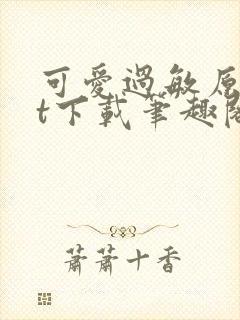 可愛過敏原
t下載筆趣閣
蕭蕭十香